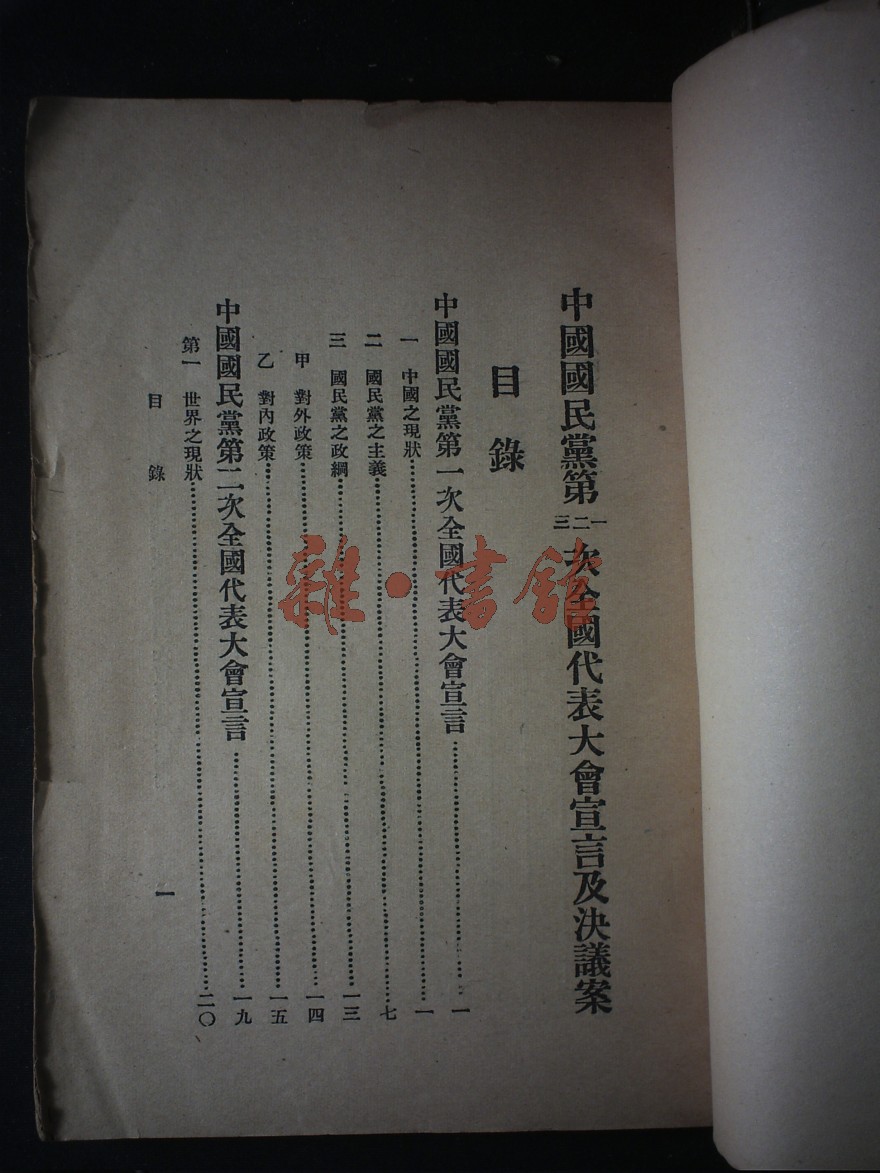 中國國民黨第一二三次全國代表大會宣言及決議案
目錄
中國國民黨第一次全國代表大會宣言……一
一 中國之現狀……一
二 國民黨之主義……七
三 國民黨之政綱……一三
甲 對外政策……一四
乙 對內政策……一五
中國國民黨第二次全國代表大會宣言……一九
第一 世界之現狀……二〇
目錄 一
雜·書館